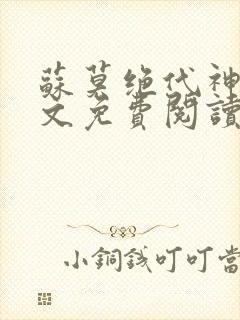 蘇莫绝代神
文免費閱讀
小銅錢叮叮當